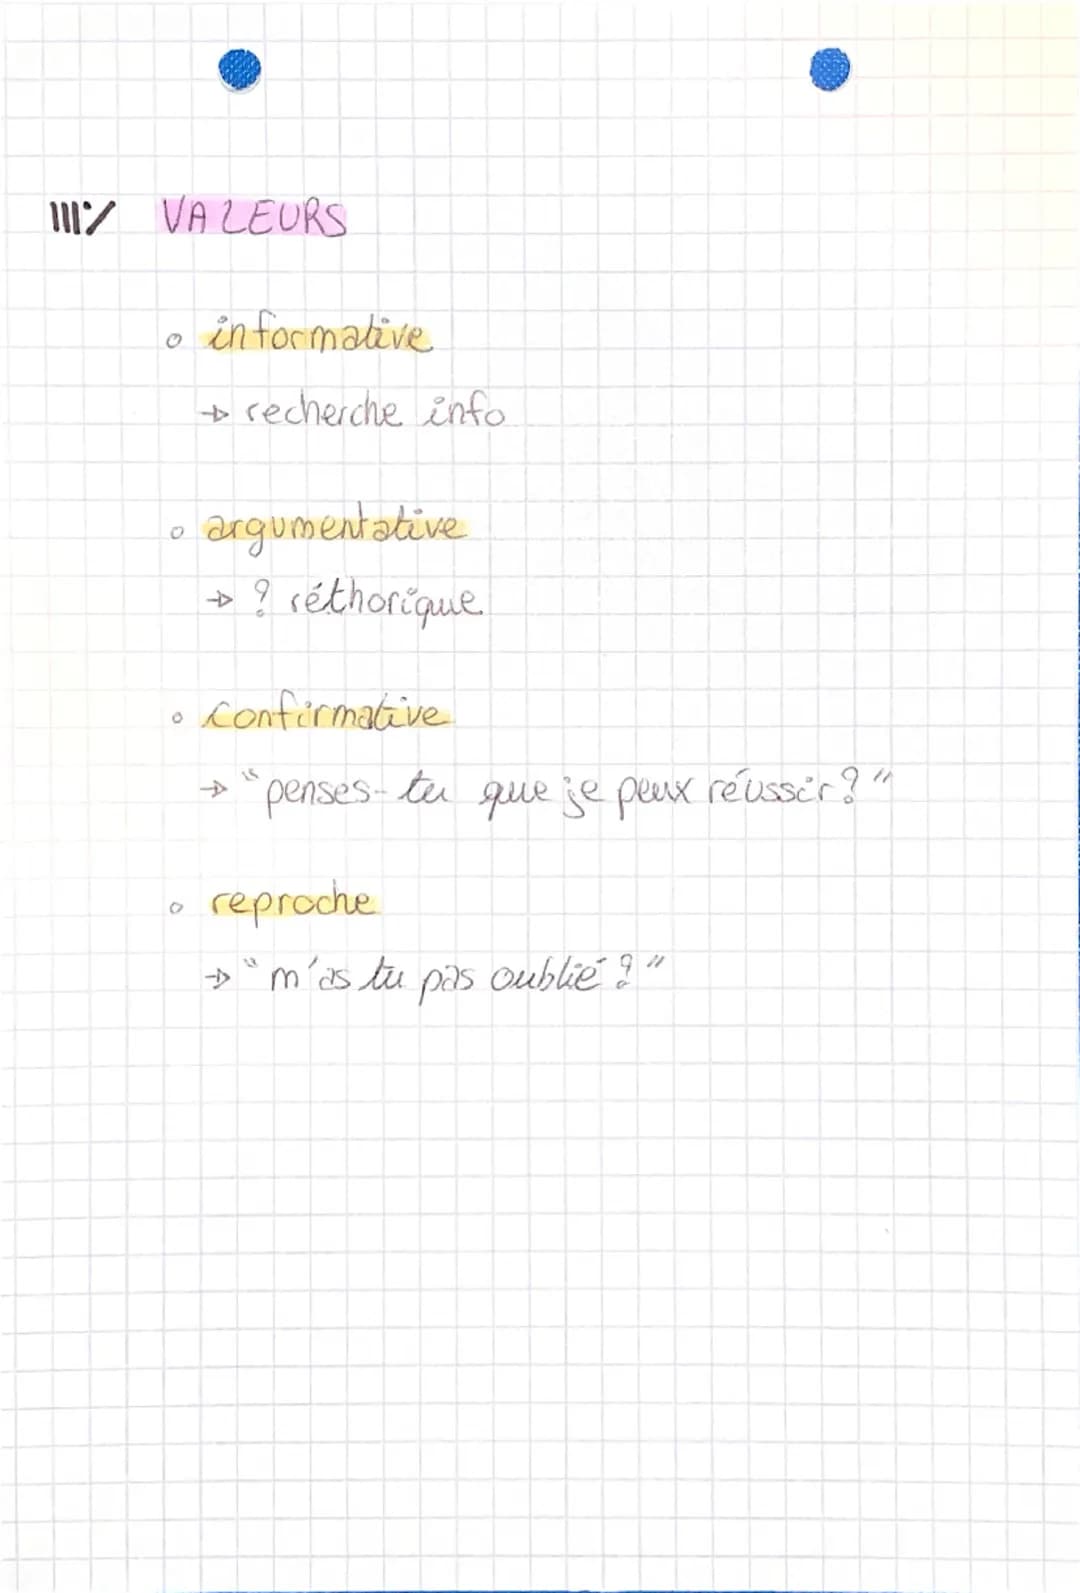 III°/ VALEURS
o informative
→ recherche info
o argumentative
→ ? réthorique
o confirmative
→ "penses-tu que je peux réussir ? "
o reproche
→ "m'as tu pas oublié ? "